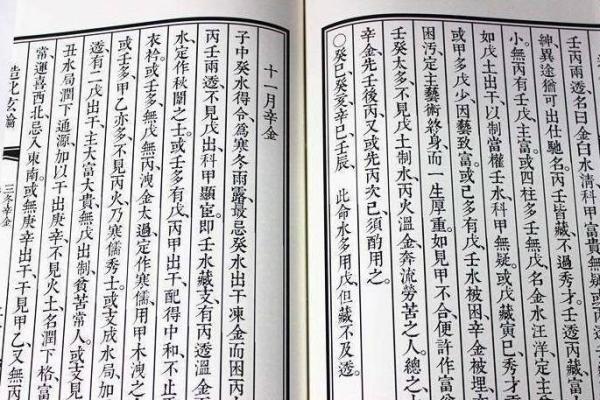 壬丙兩透、名曰金白水清、科甲富貴無疑、或丙
紳、異途猶可出仕馳名、丙壬皆藏、不過秀才、壬透丙藏、富
小、無丙有壬戊、主富、或四柱多壬無戊、名金水汪洋、定主
如戊土出干、以制當權壬水、科甲無疑、或戊藏寅巳、秀才
或甲多戊少、因藝致富、或己多有戊、壬水被困、辛金被埋、
困污、定主藝術終身、而一生厚重、如見甲不合、便許作富
壬癸太多、不見戊土制水、丙火溫金、奔流勞苦之人、總之
辛金先壬後丙、又或先丙次己、須酌用之。
○癸巳、癸亥、辛巳、壬辰、 此命水多用戊、但藏不及透。
十一月辛金
子中癸水得令、為寒冬雨露、最忌癸水出干、凍金而困丙
丙壬兩透、不見戊出、科甲顯宦、即壬水藏支、有丙透溫金
水、定作秋闈之士、或壬多有戊、丙甲出干、配得中和、不止
衣衿、或壬多、無戊無丙、洩金太過、定作寒儒、用甲木洩之
或壬多、甲乙亦多、不見丙火、乃寒儒秀士、或支成水局、加
透、有二戊出干、主大富大貴、無戊出制、貧苦常人。或支見
丑、水局潤下通源、加以干出庚辛、不見火土、名潤下格、富
常、運喜西北、忌入東南。或無庚辛出干、干見甲乙、又無丙
造化玄鑰
三冬辛金